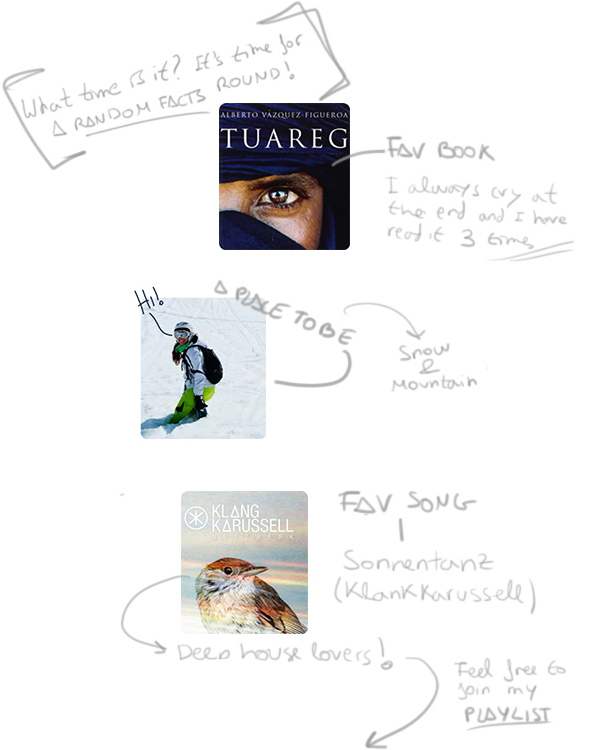 What time is it? It's time for
A RANDOM FACTS ROUND!
ALBERTO VÁZQUEZ-FIGUEROA
TUAREG
FAV BOOK
I always cry at
the end and I have
read it 3 times
HI!
A PLACE TO BE
Snow
&
Mountain
KLANG
KARUSSELL
NETZWERK
FAV SONG
Sonnentanz
(Klankkarussell)
Deep house lovers!
Feel free to
join my
PLAYLIST